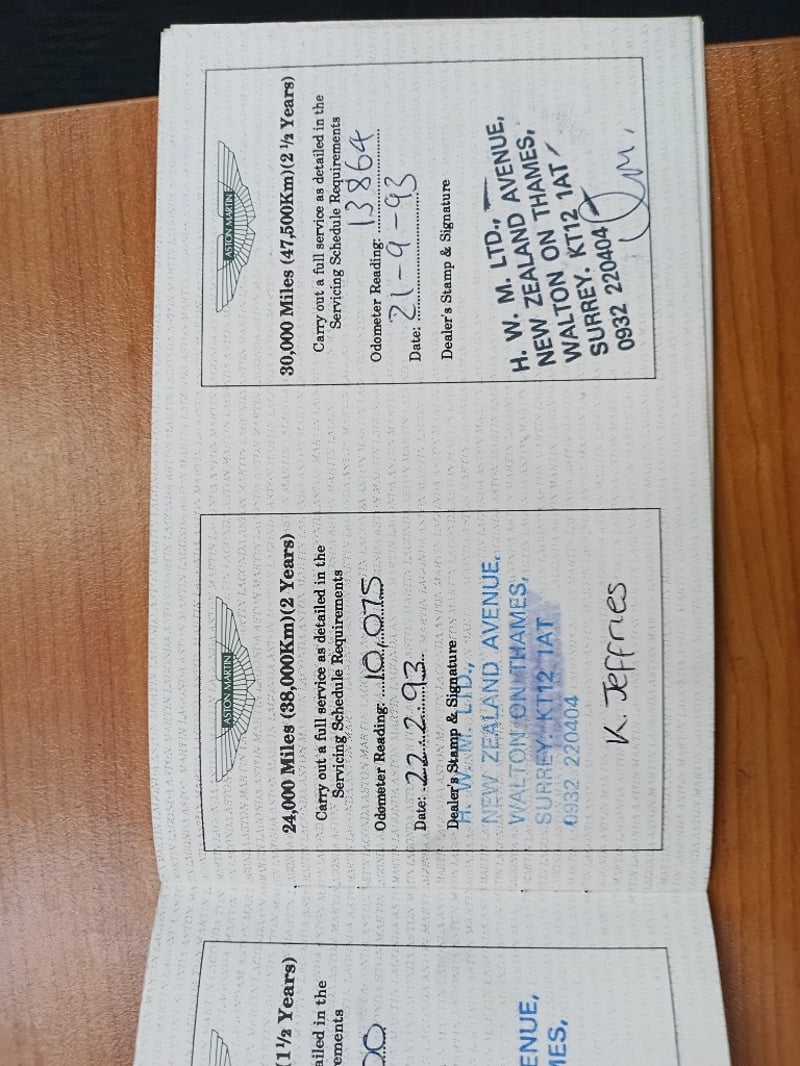 (1½ Years)
ailed in the
ements
00
ENUE,
MES,
ASTON MARTIN
24,000 Miles (38,000Km)(2 Years)
Carry out a full service as detailed in the
Servicing Schedule Requirements
Odometer Reading: 10,075
Date: 22.2.93
Dealer's Stamp & Signature
H. W. M. LTD.,
NEW ZEALAND AVENUE,
WALTON ON THAMES,
SURREY. KT12 1AT
0932 220404
K. Jeffries
ASTON MARTIN
30,000 Miles (47,500Km)(2 ½ Years)
Carry out a full service as detailed in the
Servicing Schedule Requirements
Odometer Reading: 13864
Date: 21-9-93
Dealer's Stamp & Signature
H. W. M. LTD.,
NEW ZEALAND AVENUE,
WALTON ON THAMES,
SURREY. KT12 1AT
0932 220404